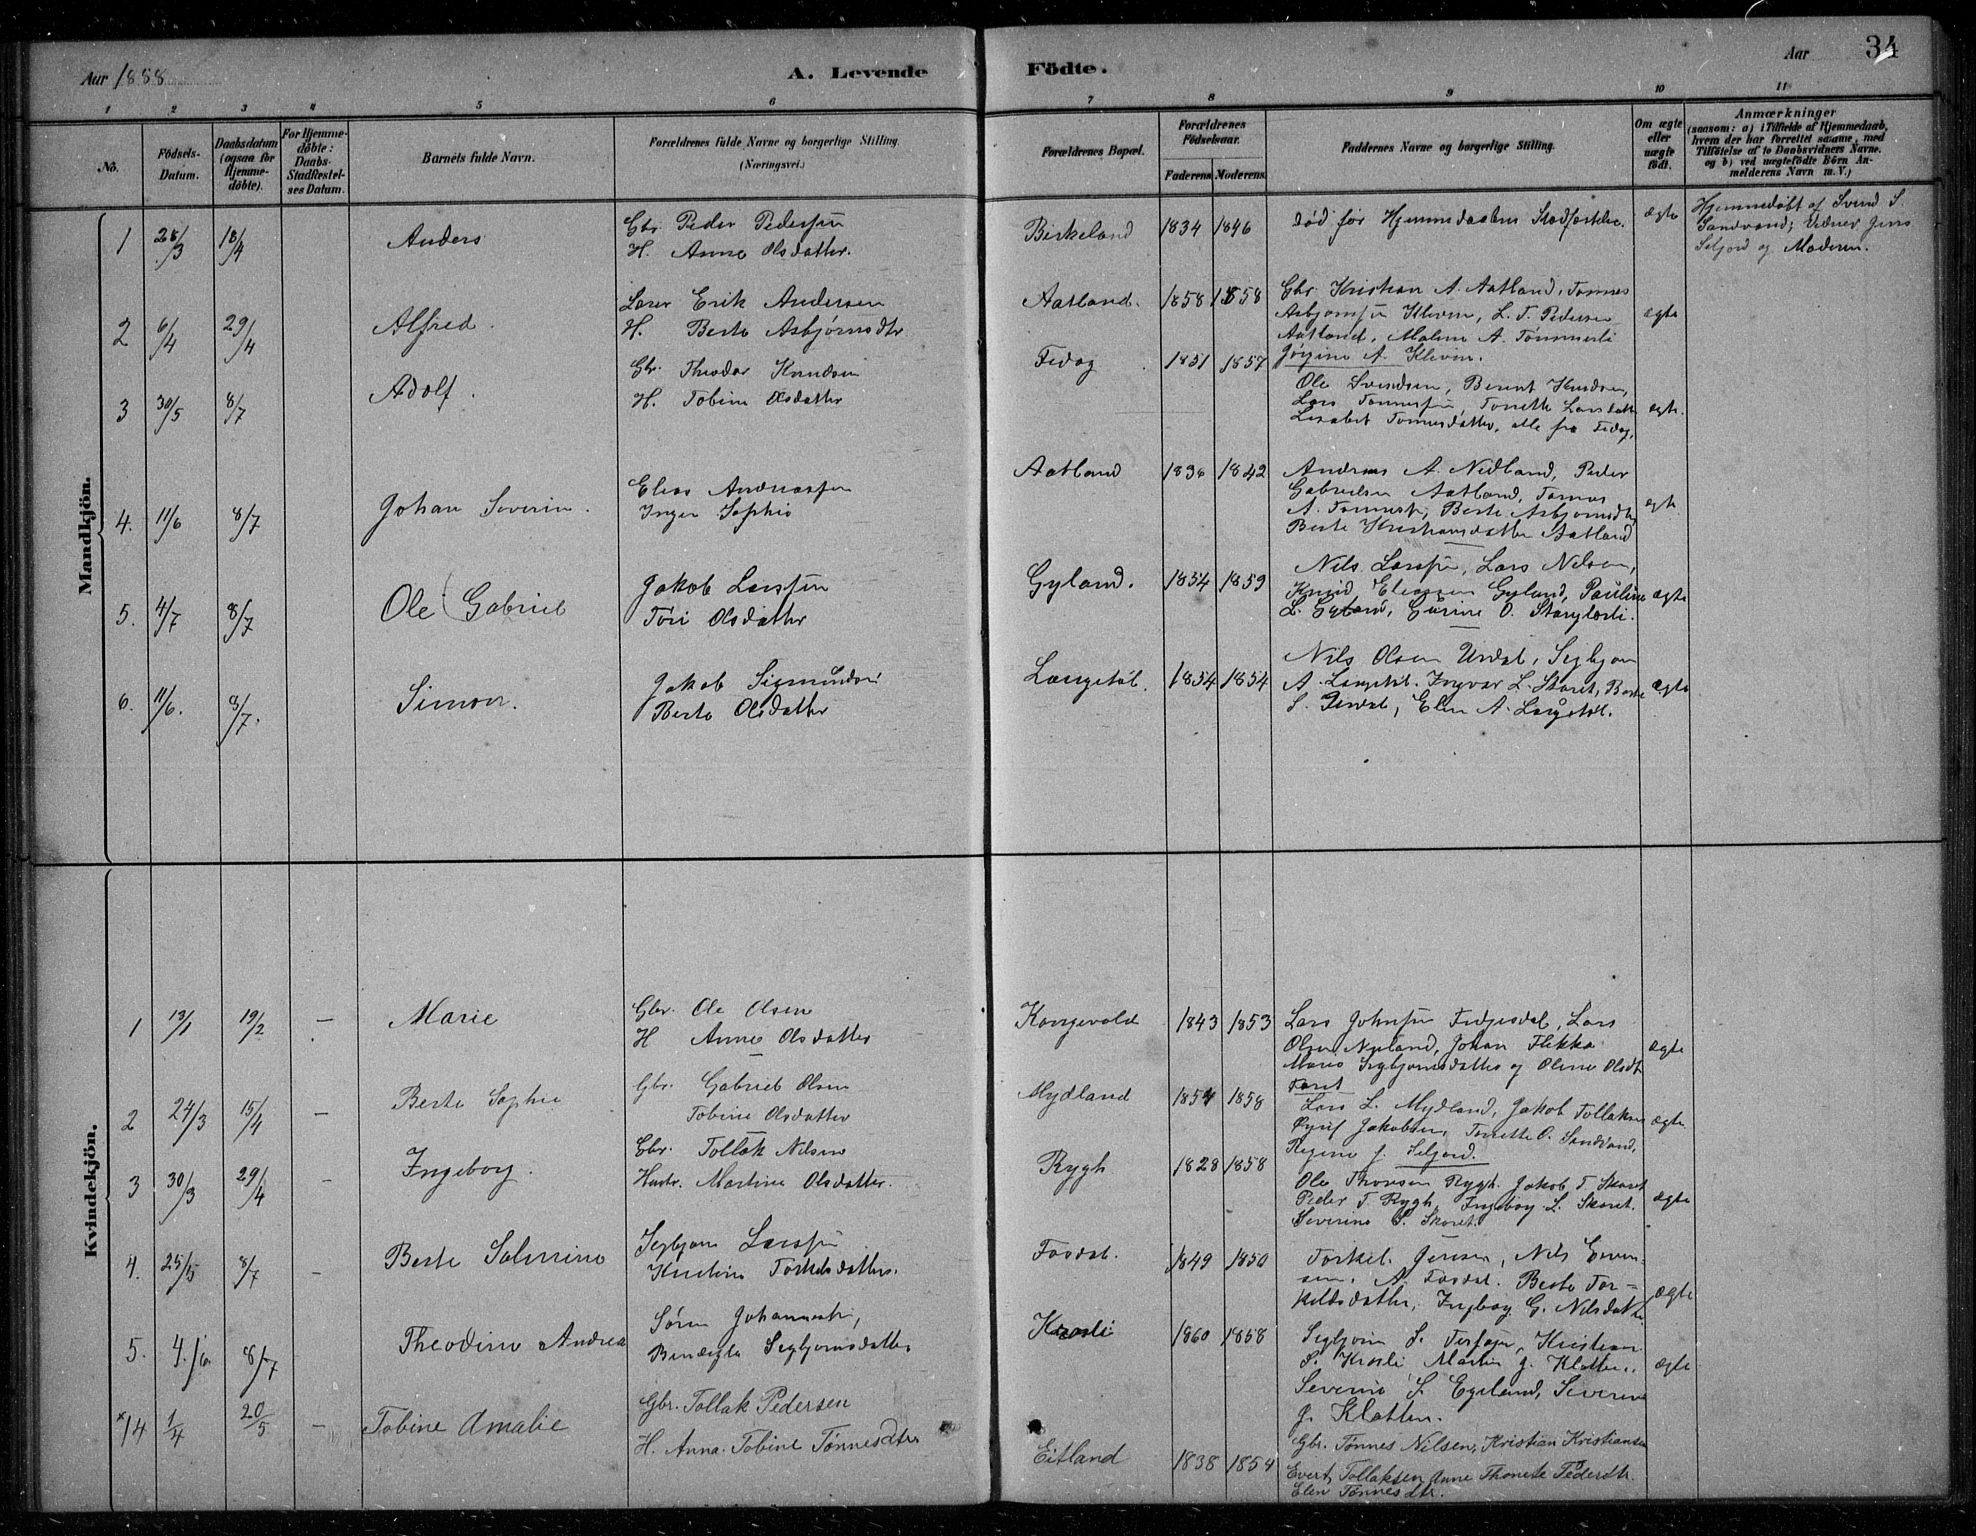 Aar 1888
A. Levende Födte.
Aar
34
1 2 3 4 5 6 7 8 9 10 11
No.
Födsels-Datum.
Daabsdatum (ogsaa for Hjemme-döbte).
For Hjemme-döbte: Daabs-Stadfæstel-ses Datum.
Barnets fulde Navn.
Forældrenes fulde Navne og borgerlige Stilling
(Næringsvei.)
Forældrenes Bopæl.
Forældrenes Födselsaar.
Faderens. Moderens.
Faddernes Navne og borgerlige Stilling.
Om ægte eller uægte födt.
Anmærkninger
(saasom: a) i Tilfælde af Hjemmedaab,
hvem der har forrettet samme, med
Tilföielse af to Daabsvidners Navne.
og b) ved uægtefödte Börn An-
melderens Navn m. V.)
Mandkjön.
1 28/3 18/4 Anders
Gbr. Peder Pederssøn
H. Anne Olsdatter.
Birkeland 1834 1846
død før Hjemmedaabens Stadfæstelse.
ægte
Hjemmedøbt af Svend S.
Sandvand; Vidner Jens
Seljord og Moderen.
2 6/4 29/4 Alfred.
Lærer Erik Andersen
H. Berte Asbjørnsdtr
Aatland. 1858 1858
Gbr. Kristian A. Aatland, Tønnes
Asbjørnsøn Kleven, L. T. Pedersen
Aatland, Maline A. Tømmerli
Jørgine A. Kleven.
ægte
3 30/5 8/7 Adolf.
Gbr. Theodor Knudsen
H. Tobine Olsdatter
Fedog 1851 1857
Ole Svendsen, Berent Knudsen,
Lars Tønnesøn, Tonette Larsdatter
Lisabet Tønnesdatter, alle fra Fedog.
ægte.
4. 11/6 8/7 Johan Severin.
Elias Andreassøn
Inger Sophie
Aatland 1836 1842
Andreas A. Nedland, Peder
Gabrielsen Aatland, Tønnes
A. Berte Asbjørnsdtr
Berte Kristiansdatter Aatland
ægte
5. 4/7 8/7 Ole Gabriel
Jakob Larssøn
Tori Olsdatter
Gyland. 1854 1859
Nils Larssøn, Lars Nilsen,
Knud Eliassen Gyland, Pauline
L. Gyland, Gurine O.
ægte
6. 11/6. 8/7. Simon.
Jakob Sigmundsøn
Berte Olsdatter
Langstøl. 1854 1854
Nils Olsen Urdal, Segbjørn
A. Langstøl. Ingvar L. Skoret, Berte
S. Urdal, Elen A. Langstøl.
ægte
Kvindekjön.
1 13/1 19/2 — Marie
Gbr. Ole Olsen
H Anne Olsdatter
Kongevold 1843 1853
Lars Johnsøn Fidjesdal, Lars
Olsen Nyland, Johan Flikka
Marie Segbjørnsdatter og Oline Olsdt
ægte
2 24/3 15/4 — Berte Sophie
Gbr. Gabriel Olsen
Tobine Olsdatter
Mydland 1854 1858
Lars L. Mydland, Jakob Tollaksen
Jakobsen, Tonette O. Sandvand,
Regine J. Seljord.
ægte
3 30/3 29/4 — Ingeborg.
Gbr. Tollak Nilsen
Hustr. Martine Olsdatter.
Rygh 1828 1858
Ole Thorsen Rygh. Jakob T Skoret
Peder T Rygh, Ingeborg L. Skoret.
Severine S. Skoret.
ægte
4. 25/5 8/7 — Berte Salmine
Segbjørn Larssøn
Kristine Torkelsdatter.
Fossdal. 1849 1850
Torkel Jensen, Nils
A. Fossdal. Berte Tor-
keldsdatter, Ingborg G. Nilsdatter
ægte
5. 4./6. 8/7 Theodine Andrea
Søren
Bendigta Segbjørnsdatter
Krosli 1860 1858
Segbjørn S. Kristian
S. Krosli Martin J. Klatten,
Severine S. Egeland, Severine
J. Klatten.
ægte
×14 1/4 20/5 — Tobine Amalie
Gbr. Tollak Pedersen
H. Anna Tobine Tønnesdtr
Eitland 1838 1854
Gbr. Tønnes Nilsen, Kristian Kristiansen
Evert Tollaksen Anne Thonete Pedersdtr.
Elen Tønnesdtr.